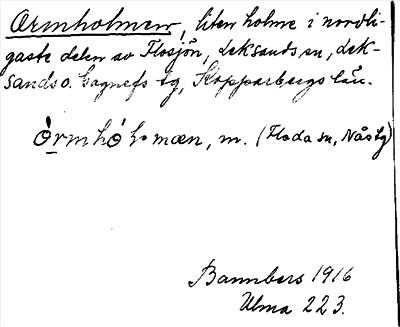 Ormholmen, liten holme i nordli-
gaste delen av Flosjön, Leksands sn, Lek-
sands o. Gagnefs tg, Kopparbergs län.
òrmhóḷmæn, m. (Floda sn, Nås tg)
Bannbers 1916
Ulma 223.